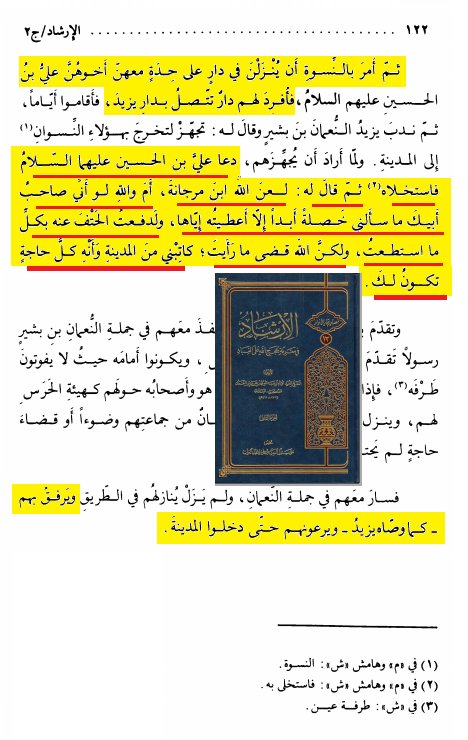 ١٢٢ ........................................ الإرشاد/ج٢
ثمّ أمرَ بالنِّسوةِ أن يُنْزَلْنَ في دارٍ على حِدَةٍ معهنّ أخوهُنَّ عليُّ بنُ
الحسينِ عليهم السلامُ، فأُفرِدَ لهم دارٌ تتّصلُ بدارِ يزيدَ، فأقاموا أيّاماً،
ثمّ ندبَ يزيدُ النُّعمانَ بنَ بشيرٍ وقالَ له: تجهّزْ لتخرجَ بهؤلاءِ النِّسوانِ(١)
إلى المدينةِ. ولمّا أرادَ أن يُجهِّزَهم، دعا عليَّ بن الحسين عليهما السّلامُ
فاستخلاه(٢) ثمّ قالَ له: لعنَ اللهُ ابنَ مرجانةَ، أمَ واللهِ لو أنّي صاحبُ
أبيكَ ما سألَني خَصلةً أبداً إلّا أعطيتُه إيّاها، ولدفعتُ الحَتْفَ عنه بكلِّ
ما استطعتُ، ولكنَّ اللهَ قضى ما رأيتَ؛ كاتِبْني منَ المدينةِ وَأَنْهِ كلَّ حاجةٍ
تكونُ لكَ.
وتقدّمَ
فذَ معَهم في جملةِ النُّعمانِ بنِ بشيرٍ
رسولاً تَقدّمَ
، ويكونوا أمامَه حيثُ لا يفوتونَ
طَرْفَه(٣)، فإذا
هو وأصحابُه حولَهم كهيئةِ الحَرَسِ
لهم، وينزلَ
من جماعتِهم وضوءاً أو قضاءَ
حاجةٍ لم
الإرشاد
١٣
فسارَ معَهم في جملةِ النُّعمانِ، ولم يَزَلْ يُنازلُهم في الطّريقِ ويَرفقُ بهم
ـ كما وصّاه يزيدُ ـ ويرعونَهم حتّى دخلوا المدينةَ.
(١) في «م» وهامش «ش»: النسوة.
(٢) في «م» وهامش «ش»: فاستخلى به.
(٣) في «ش»: طرفة عين.